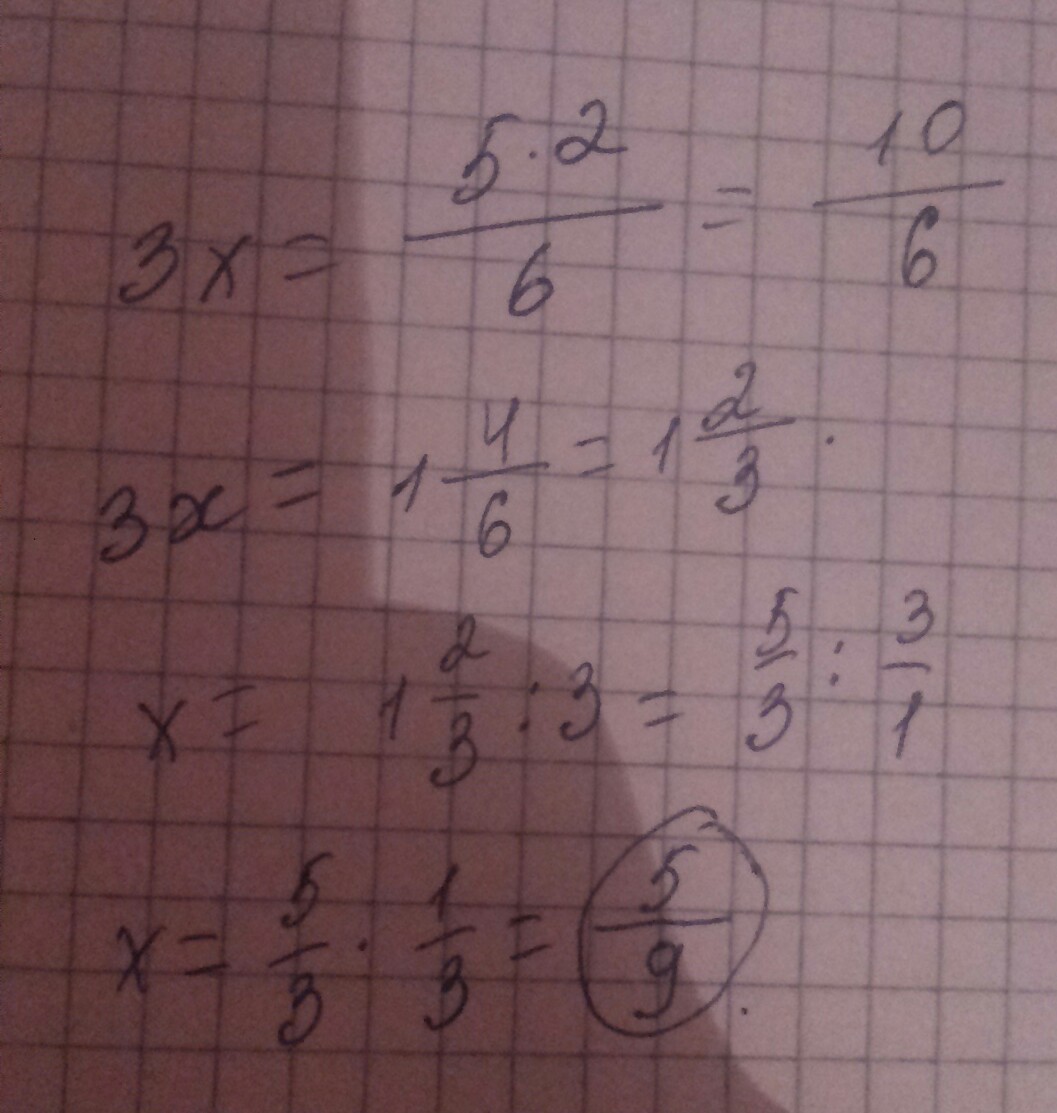 3x = \frac{5 \cdot 2}{6} = \frac{10}{6}
3x = 1\frac{4}{6} = 1\frac{2}{3}.
x = 1\frac{2}{3} : 3 = \frac{5}{3} : \frac{3}{1}
x = \frac{5}{3} \cdot \frac{1}{3} = \frac{5}{9}.